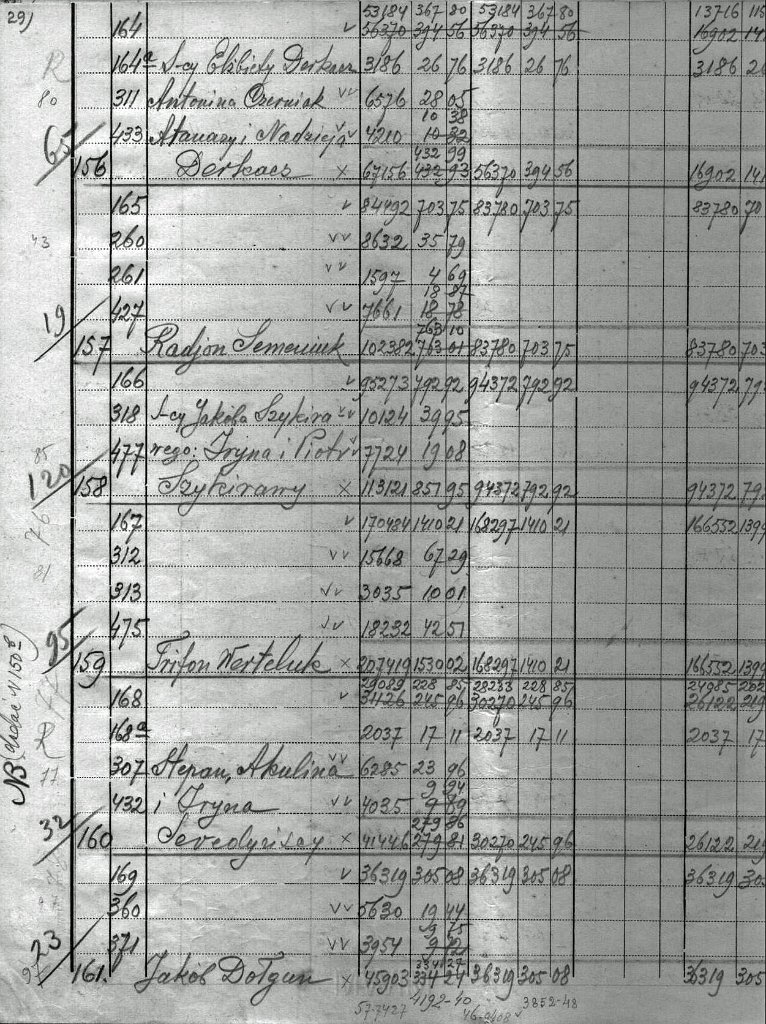 29) 53184 367 80 53184 367 80 13716 115
164 v 56370 394 56 56370 394 56 16902 141
R 164a S-cy Elżbiety Derkacz 3186 26 76 3186 26 76 3186 26
80 311 Antonina Czerniak vv 6576 28 05
10 38
65 433 Atanazy i Nadzieja v 4210 10 32
432 99
156 Derkacz x 67156 432 93 56370 394 56 16902 141
165 v 84492 703 75 83780 703 75 83780 70
43 260 vv 8632 35 79
261 vv 1597 4 69
18 87
19 427 vv 7661 18 78
763 10
157 Radjon Semeniuk 102382 763 01 83780 703 75 83780 703
166 v 95273 792 92 94372 792 92 94372 792
318 S-cy Jakóba Szykira vv 10124 39 95
85 477 wego: Iryna i Piotr vv 7724 19 08
120 158 Szykirawy x 113121 851 95 94372 792 92 94372 792
76 167 v 170484 1410 21 168297 1410 21 166552 1399
312 vv 15668 67 29
81 313 vv 3035 10 01
475 vv 18232 42 51
95 159 Trifon Werteluk x 207419 1530 02 168297 1410 21 166552 1399
29089 228 85 28233 228 85 24085 202
168 v 31126 245 96 30270 245 96 26122 219
R 168a 2037 17 11 2037 17 11 2037 17
17 307 Stepan, Akulina vv 6285 23 96
9 94
432 i Iryna vv 4035 9 89
279 86
32 160 x 41446 279 81 30270 245 96 26122 219
169 v 36319 305 08 36319 305 08 36319 305
360 vv 5630 19 44
9 75
23 371 vv 3954 9 72
334 27
161. Jakób Dołgun x 45903 334 24 36319 305 08 36319 305
4192-40 3852-48